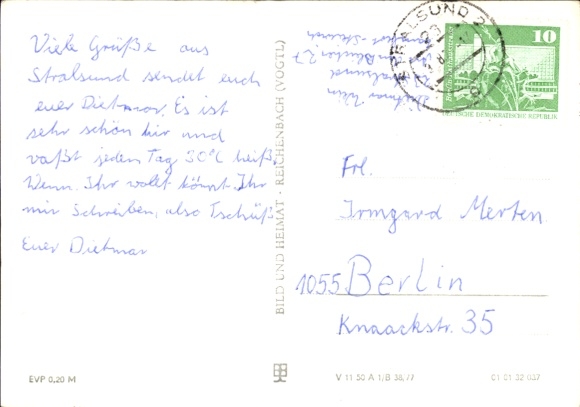 Viele Grüße aus
Stralsund sendet euch
euer Dietmar. Es ist
sehr schön hir und
vaßt jeden Tag 30°C heiß.
Wenn Ihr wollt könnt Ihr
mir Schreiben, also Tschüß
Euer Dietmar
BILD UND HEIMAT · REICHENBACH (VOGTL)
Dietmar
STRALSUND 2
10
DEUTSCHE DEMOKRATISCHE REPUBLIK
Frl.
Irmgard Merten
1055 Berlin
Knaackstr. 35
EVP 0,20 M
V 11 50 A 1/B 38/77
01 01 32 037